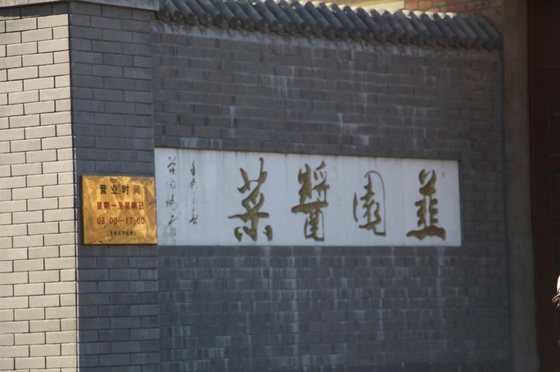 韮園醬菜
营业时间
星期一至星期日
08:00-17:00